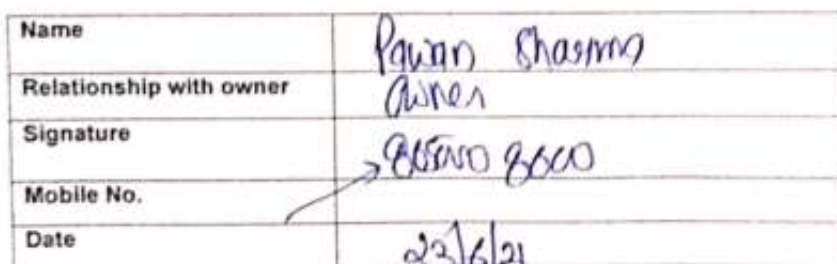 Name Pawan Sharma
Relationship with owner Owner
Signature
Mobile No.
Date 23/6/21